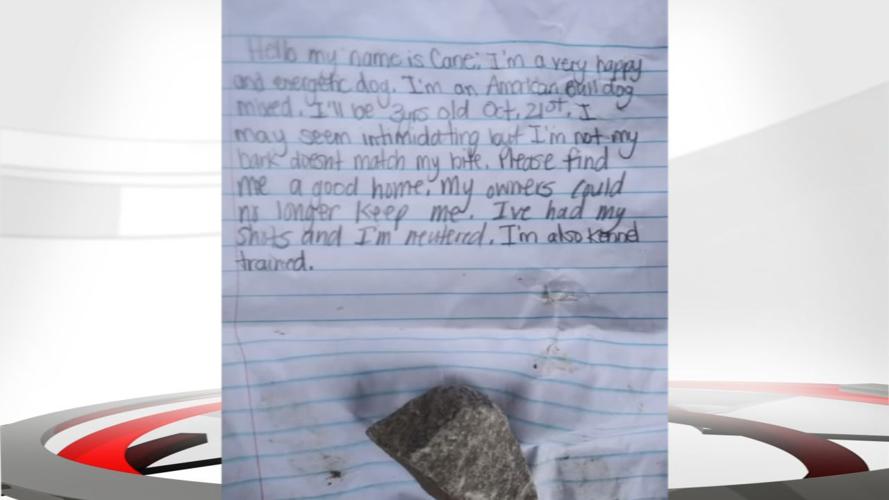 Hello my name is Cane. I'm a very happy
and energetic dog. I'm an American Bulldog
mixed. I'll be 3yrs old Oct. 21st. I
may seem intimidating but I'm not my
bark doesnt match my bite. Please find
me a good home. My owners could
no longer keep me. I've had my
shots and I'm neutered. I'm also kennel
trained.